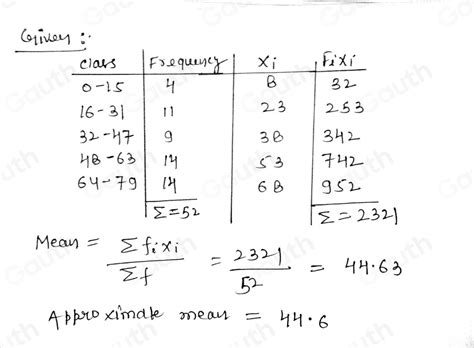 Given :-
class Frequency xi Fixi
0-15 4 8 32
16-31 11 23 253
32-47 9 38 342
48-63 14 53 742
64-79 14 68 952
Σ=52 Σ=2321
Mean = Σfixi / Σf = 2321 / 52 = 44.63
Approximate mean = 44.6